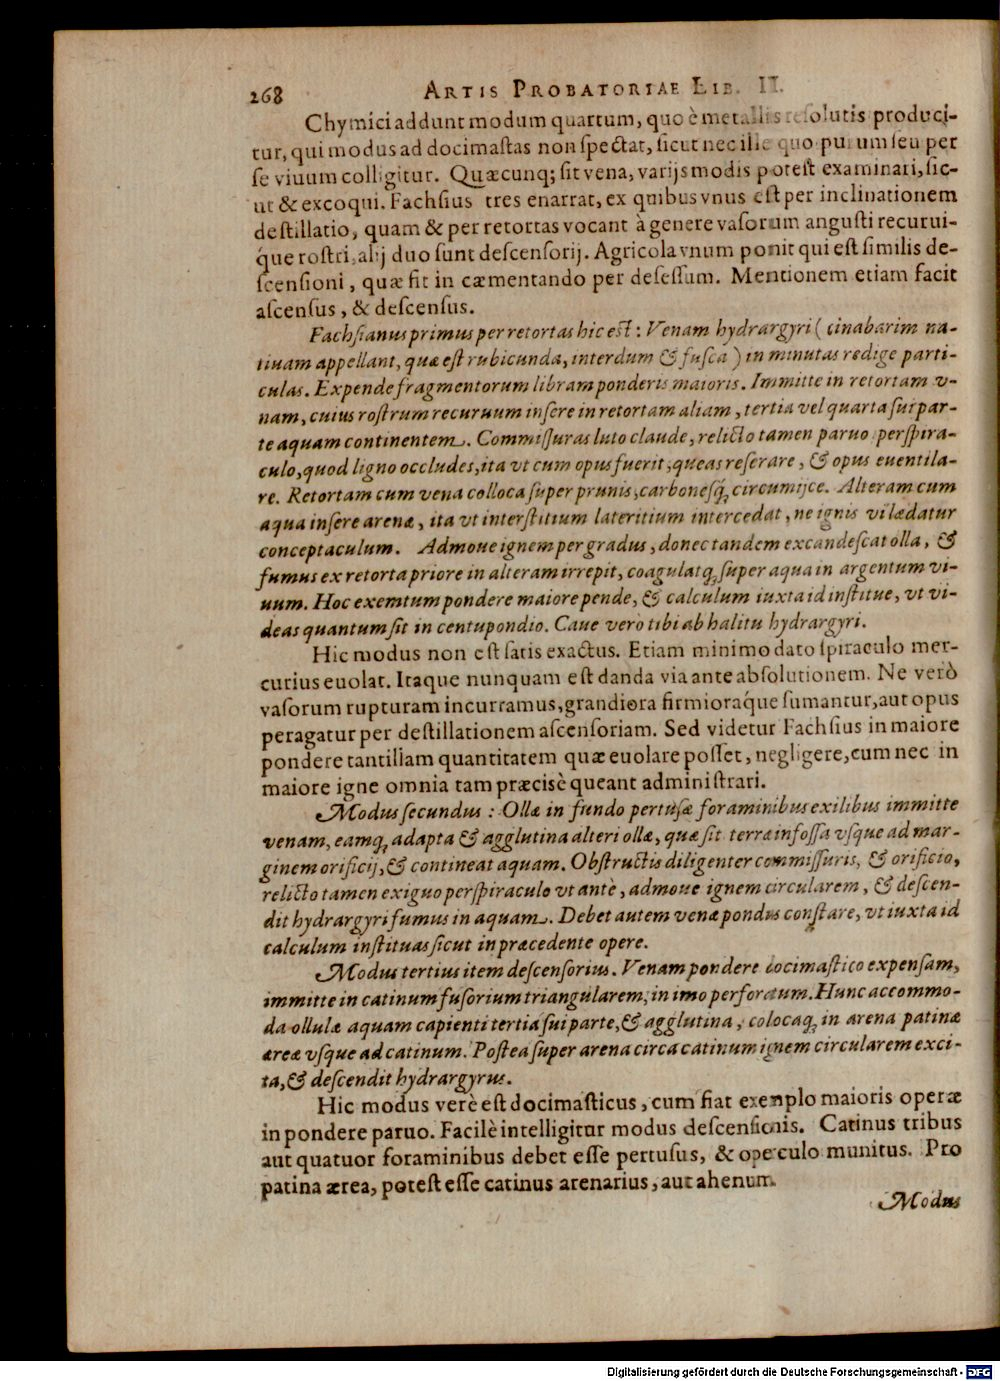 268 ARTIS PROBATORIAE LIB. II.
Chymici addunt modum quartum, quo è metallis resolutis produci-
tur, qui modus ad docimastas non spectat, sicut nec ille quo purum seu per
se viuum colligitur. Quæcunq; sit vena, varijs modis potest examinari, sic-
ut & excoqui. Fachsius tres enarrat, ex quibus vnus est per inclinationem
destillatio, quam & per retortas vocant à genere vasorum angusti recurui-
q́ue rostri, alij duo sunt descensorij. Agricola vnum ponit qui est similis de-
scensioni, quæ fit in cæmentando per desessum. Mentionem etiam facit
ascensus, & descensus.
Fachsianus primus per retortas hic est: Venam hydrargyri (cinabarim na-
tiuam appellant, quæ est rubicunda, interdum & fusca) in minutas redige parti-
culas. Expende fragmentorum libram ponderis maioris. Immitte in retortam v-
nam, cuius rostrum recuruum insere in retortam aliam, tertia vel quarta sui par-
te aquam continentem. Commissuras luto claude, relicto tamen paruo perspira-
culo, quod ligno occludes, ita vt cum opus fuerit, queas reserare, & opus euentila-
re. Retortam cum vena colloca super prunis, carbonesq́; circumijce. Alteram cum
aqua insere arenæ, ita vt interstitium lateritium intercedat, ne ignis vi lædatur
conceptaculum. Admoue ignem per gradus, donec tandem excandescat olla, &
fumus ex retorta priore in alteram irrepit, coagulatq́; super aqua in argentum vi-
uum. Hoc exemtum pondere maiore pende, & calculum iuxta id institue, vt vi-
deas quantum sit in centupondio. Caue verò tibi ab halitu hydrargyri.
Hic modus non est satis exactus. Etiam minimo dato spiraculo mer-
curius euolat. Itaque nunquam est danda via ante absolutionem. Ne verò
vasorum rupturam incurramus, grandiora firmioraq́ue sumantur, aut opus
peragatur per destillationem ascensoriam. Sed videtur Fachsius in maiore
pondere tantillam quantitatem quæ euolare posset, negligere, cum nec in
maiore igne omnia tam præcisè queant administrari.
Modus secundus: Ollæ in fundo pertusæ foraminibus exilibus immitte
venam, eamq́; adapta & agglutina alteri ollæ, quæ sit terra infossa vsque ad mar-
ginem orificij, & contineat aquam. Obstructis diligenter commissuris, & orificio,
relicto tamen exiguo perspiraculo vt antè, admoue ignem circularem, & descen-
dit hydrargyri fumus in aquam. Debet autem venæ pondus constare, vt iuxta id
calculum instituas sicut in præcedente opere.
Modus tertius item descensorius. Venam pondere docimastico expensam,
immitte in catinum fusorium triangularem, in imo perforatum. Hunc accommo-
da ollulæ aquam capienti tertia sui parte, & agglutina, colocaq́; in arena patinæ
æreæ vsque ad catinum. Postea super arena circa catinum ignem circularem exci-
ta, & descendit hydrargyrus.
Hic modus verè est docimasticus, cum fiat exemplo maioris operæ
in pondere paruo. Facilè intelligitur modus descensionis. Catinus tribus
aut quatuor foraminibus debet esse pertusus, & operculo munitus. Pro
patina ærea, potest esse catinus arenarius, aut ahenum.
Modus
Digitalisierung gefördert durch die Deutsche Forschungsgemeinschaft - DFG